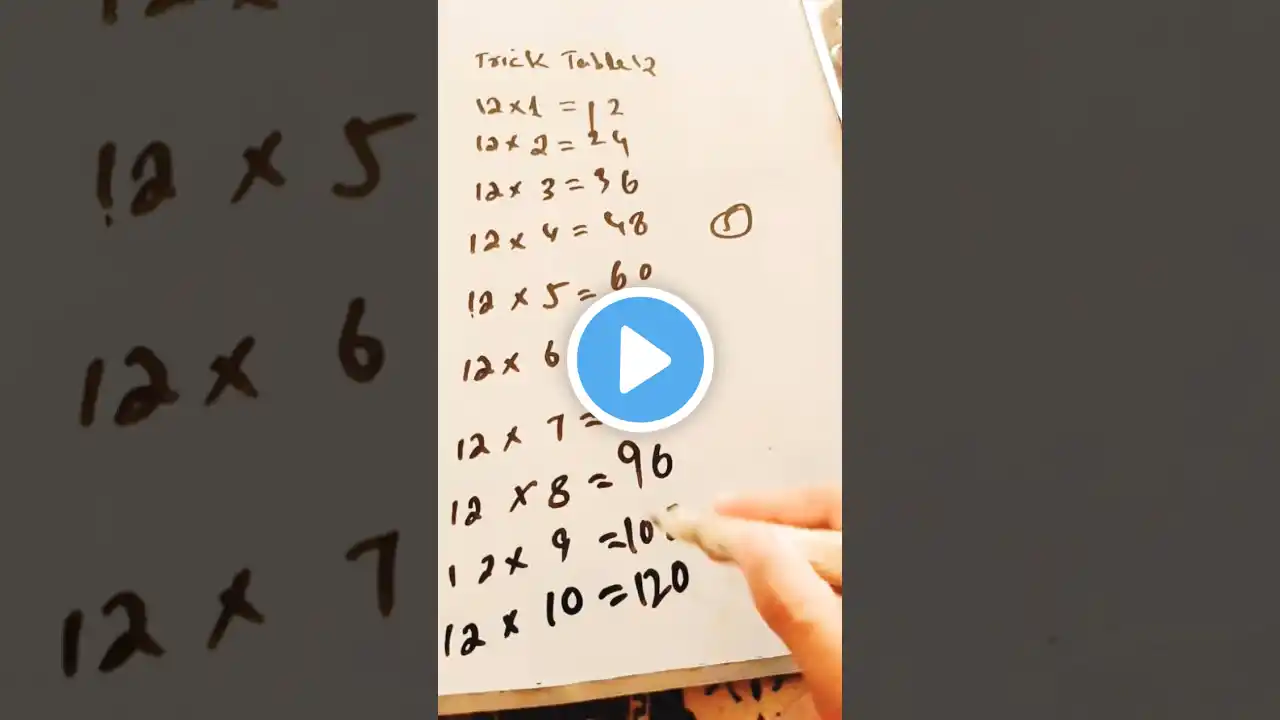 Trick Table 12
12 × 1 = 12
12 × 2 = 24
12 × 3 = 36
12 × 4 = 48
5
12 × 5 = 60
12 × 6
12 × 7 =
12 × 8 = 96
12 × 9 = 10
12 × 10 = 120
12 × 5
12 × 6
12 × 7